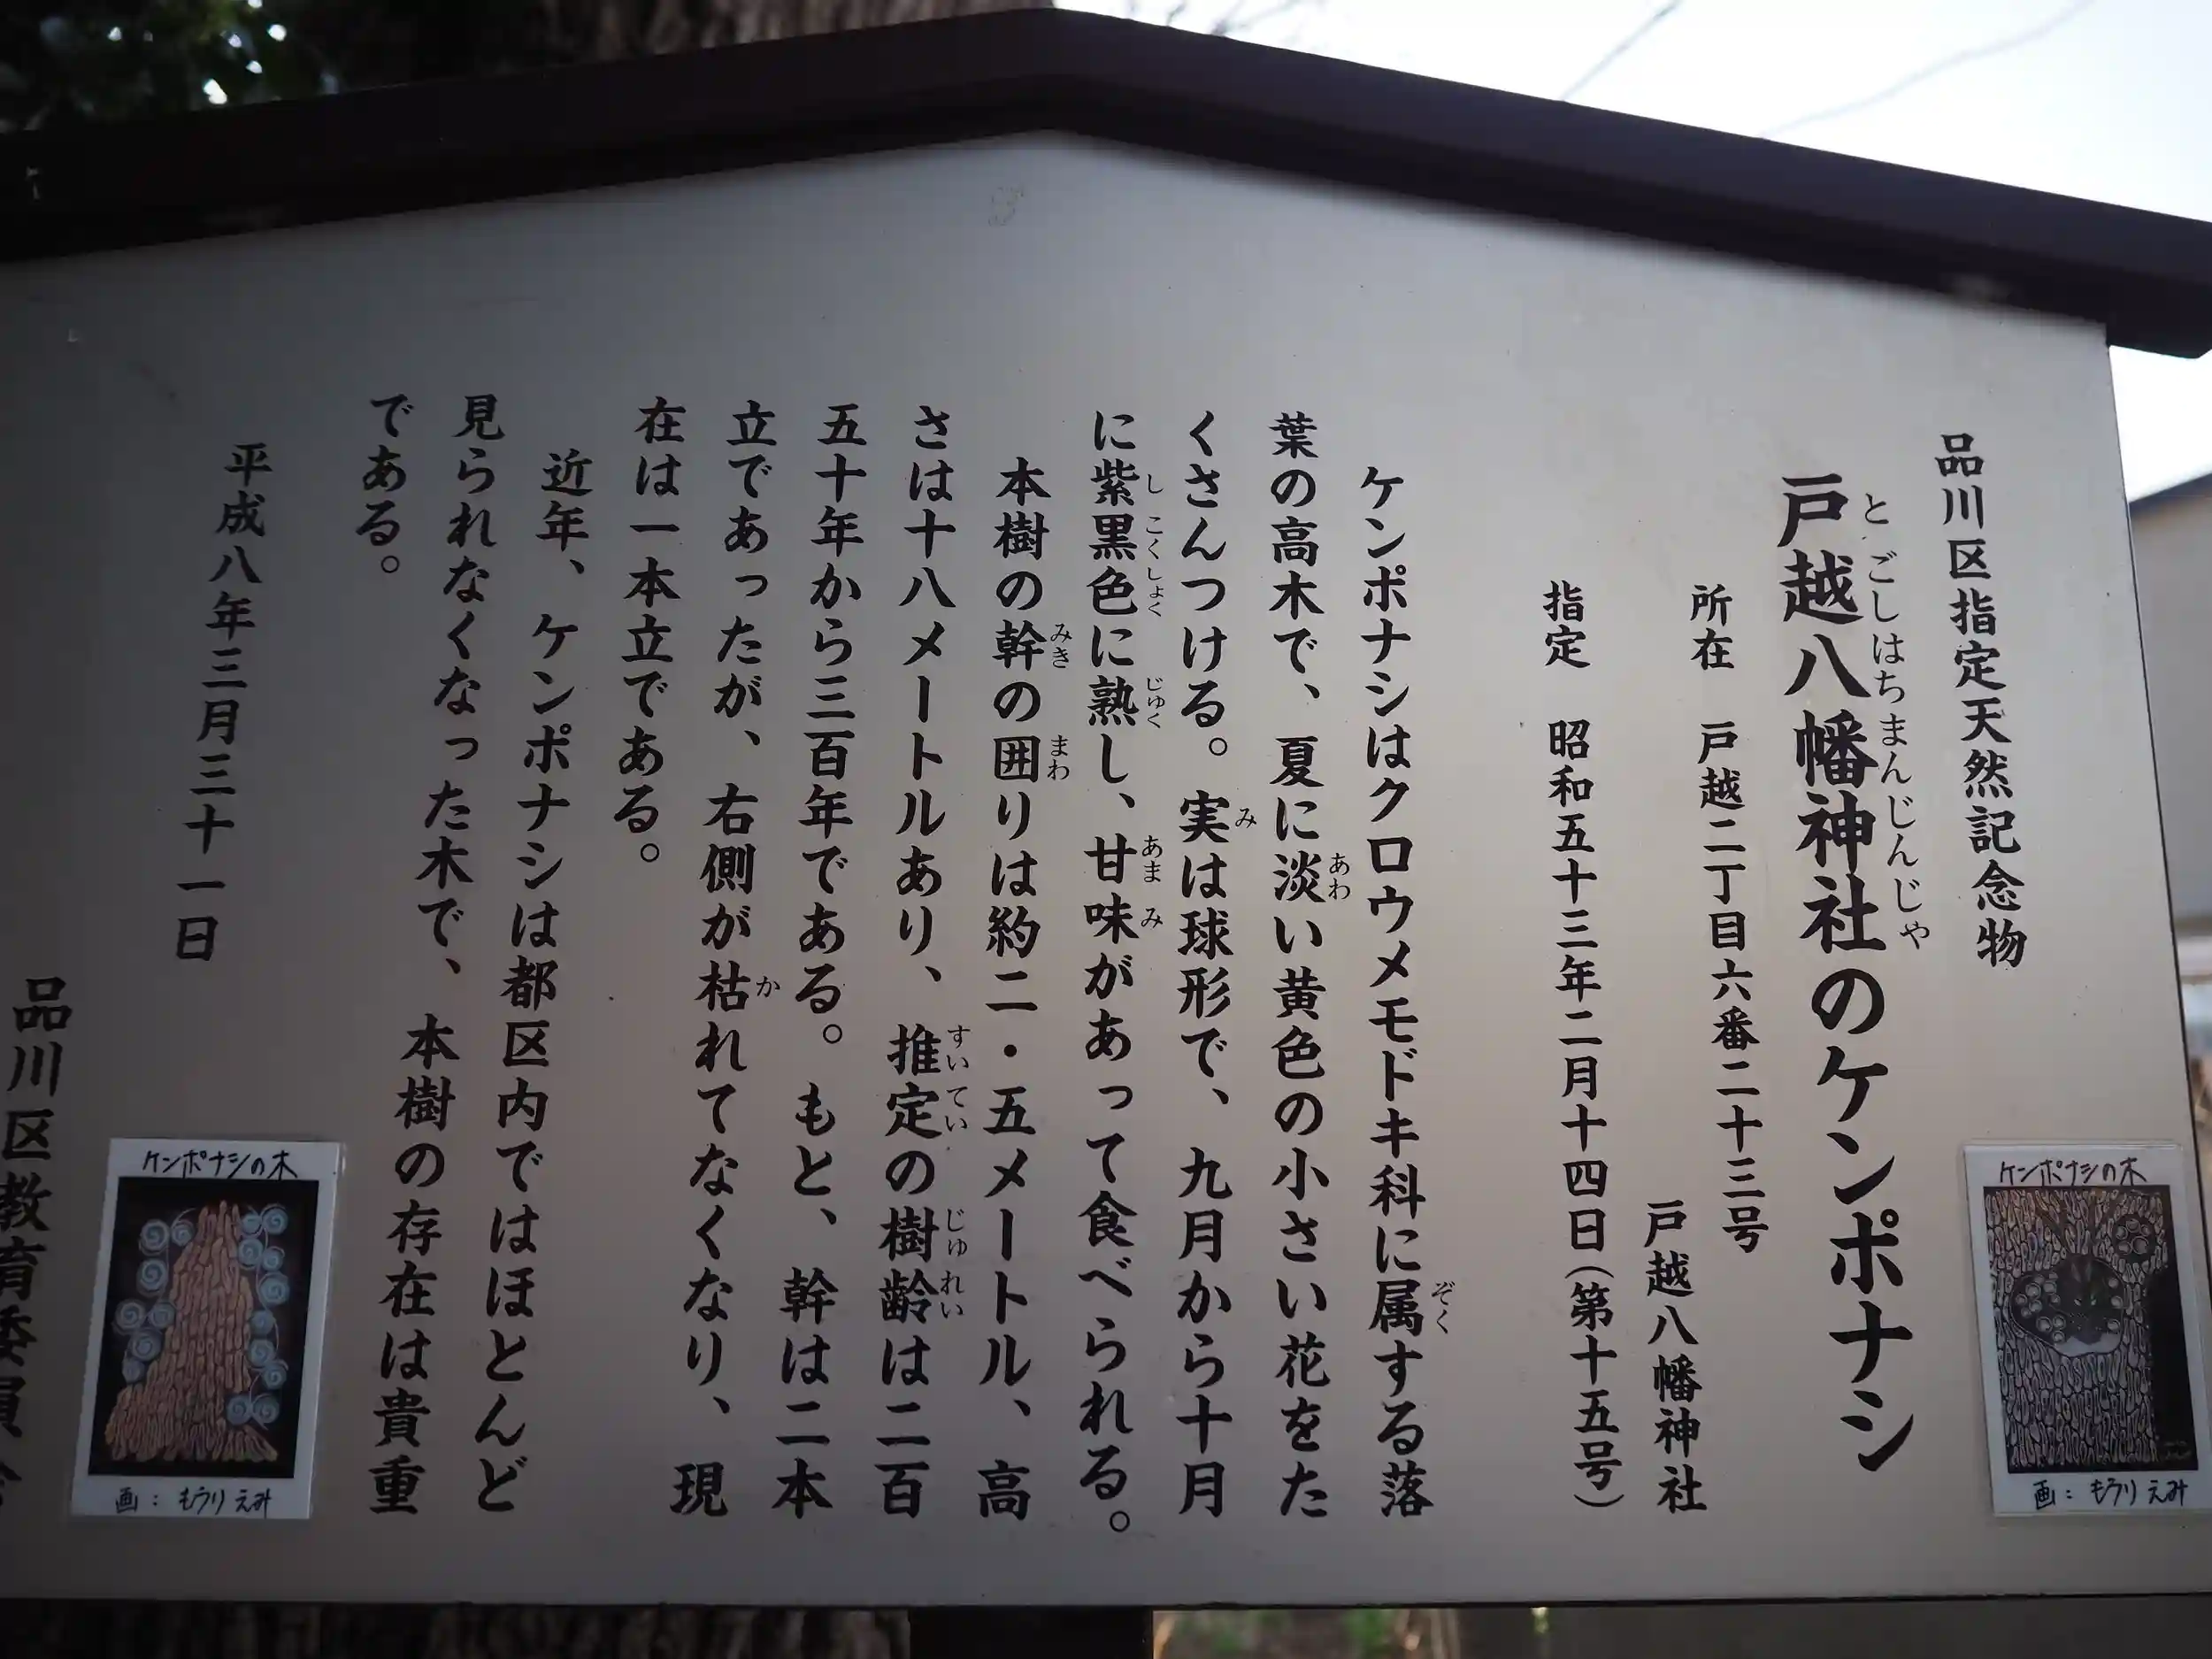 品川区指定天然記念物
戸越八幡神社のケンポナシ
とごしはちまんじんじゃ
所在　戸越二丁目六番二十三号
戸越八幡神社
指定　昭和五十三年二月十四日（第十五号）
ケンポナシはクロウメモドキ科に属する落
ぞく
葉の高木で、夏に淡い黄色の小さい花をた
あわ
くさんつける。実は球形で、九月から十月
み
に紫黒色に熟し、甘味があって食べられる。
しこくしょく　じゅく　あまみ
本樹の幹の囲りは約二・五メートル、高
みき　まわ
さは十八メートルあり、推定の樹齢は二百
すいてい　じゅれい
五十年から三百年である。もと、幹は二本
立であったが、右側が枯れてなくなり、現
か
在は一本立である。
近年、ケンポナシは都区内ではほとんど
見られなくなった木で、本樹の存在は貴重
である。
平成八年三月三十一日
品川区教育委員会
ケンポナシの木
画：もうり えみ
ケンポナシの木
画：もうり えみ